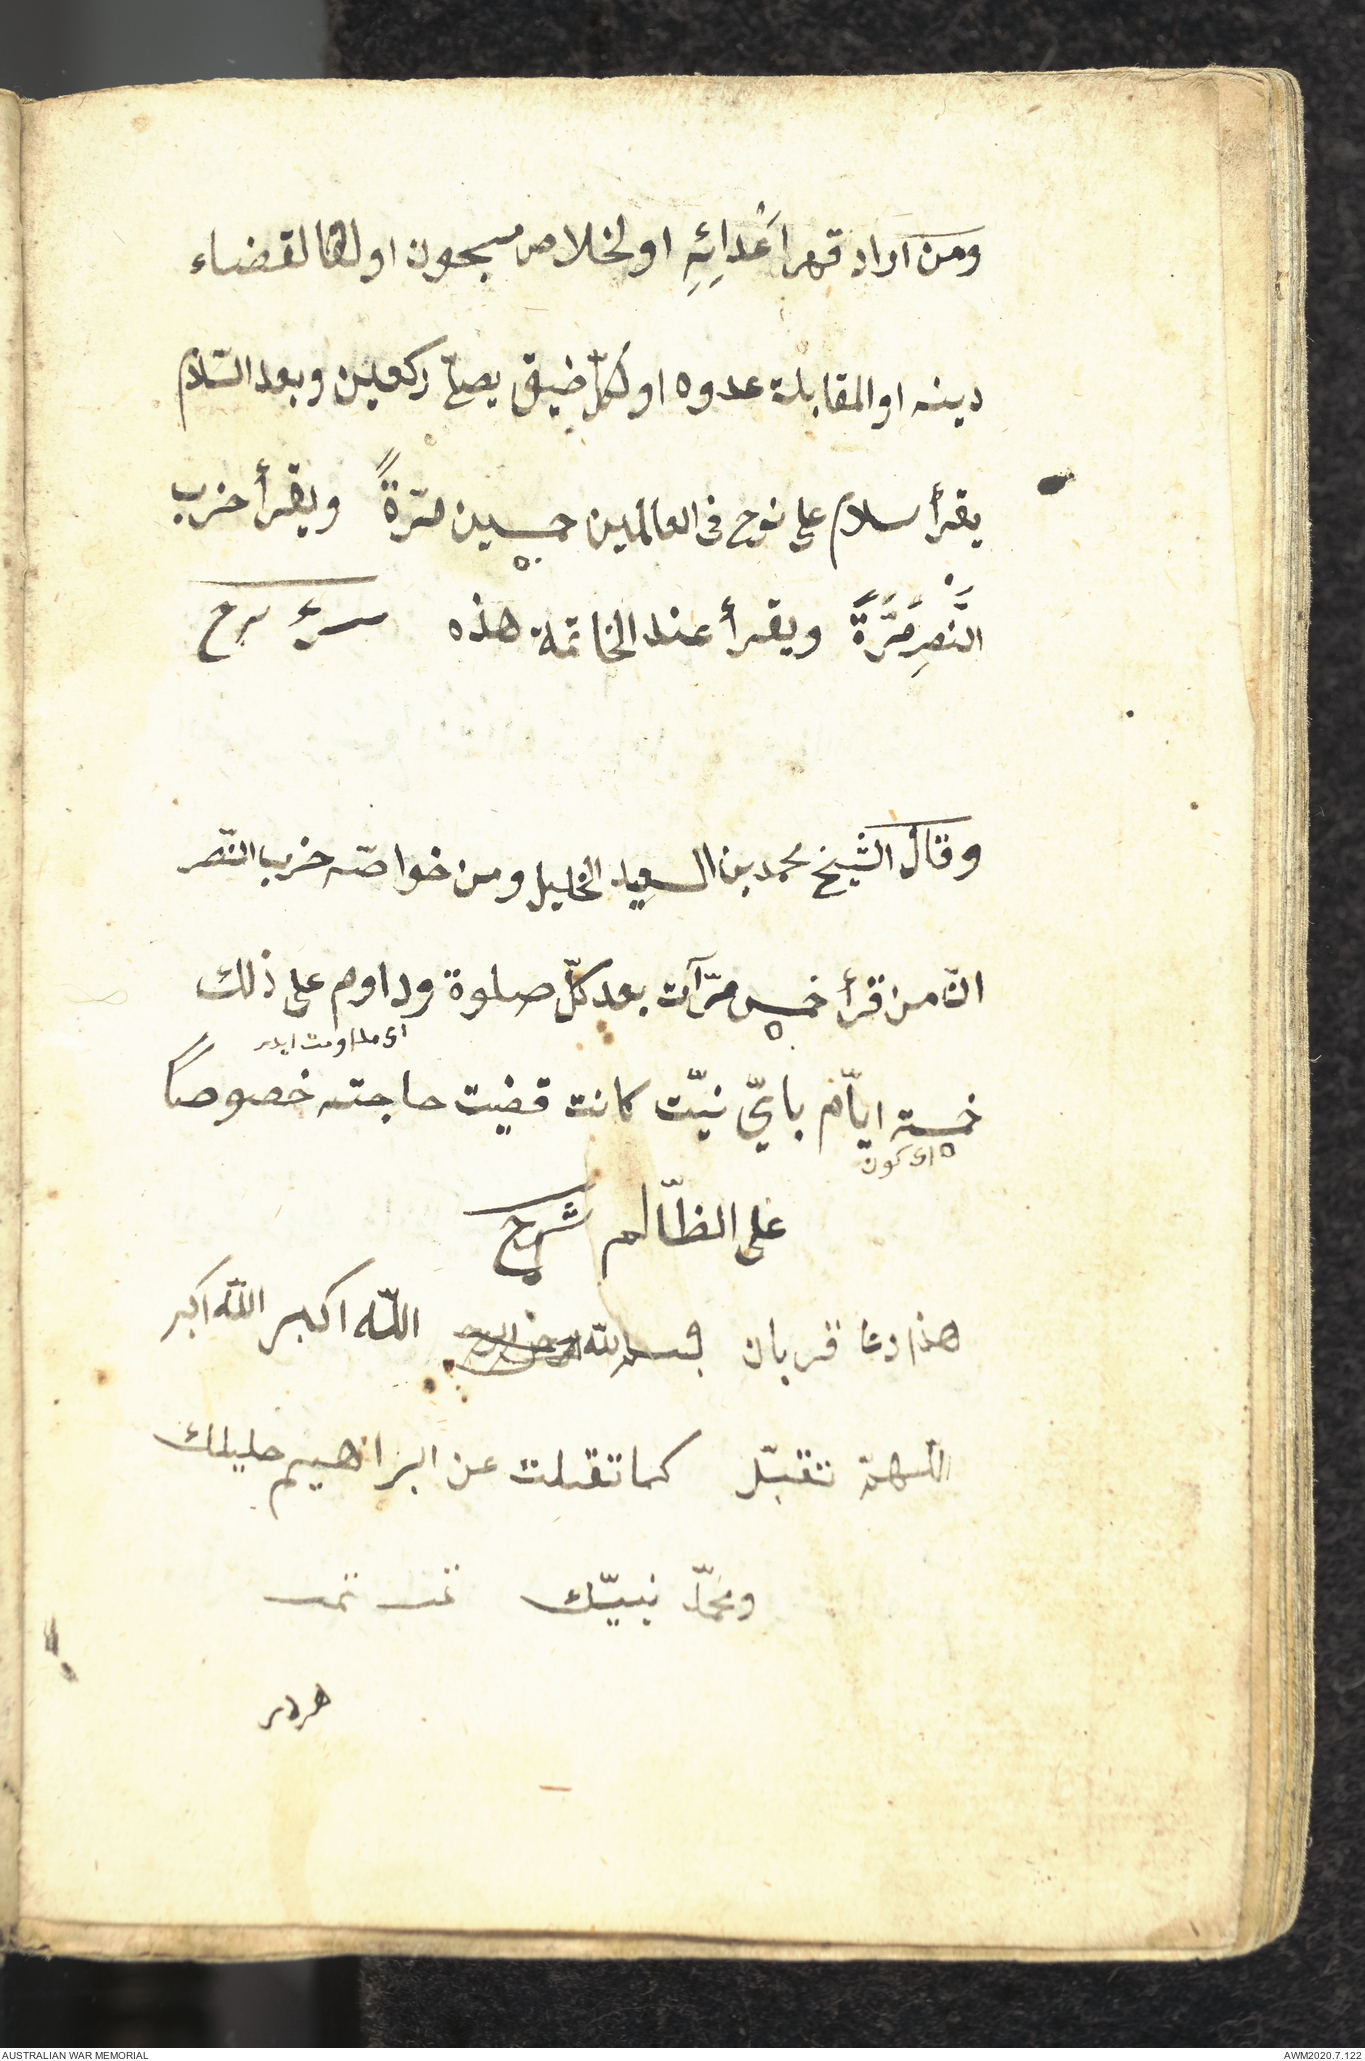 ومن اراد قهر أعْدائِهِ او لخلاص مسجون او لقضاء
دينه او المقابلة عدوه او لكلّ ضيق يصلّ ركعتين وبعد السّلام
يقرأ سلام على نوح فى العالمين خمسين مرّةً ويقرأ حزب
النَّصرِ مَرَّةً ويقرأ عند الخاتمة هذه
وقال الشيخ محمد بن السعيد الخليل ومن خواصّه حزب النّصر
انّ من قرأ خمس مرّآت بعد كلّ صلوة وداوم على ذلك
اى مداومت ايدر
خمسة ايّام بايّ نيّت كانت قضيت حاجته خصوصاً
اى كون
على الظّالم شرح
هذا دعا قربان بسم الله الرحمن الرحيم الله اكبر الله اكبر
اللّهمّ تقبّل كما تقبلت عن ابراهيم خليلك
ومحمّد نبيّك تمت تمت
AUSTRALIAN WAR MEMORIAL
AWM2020.7.122